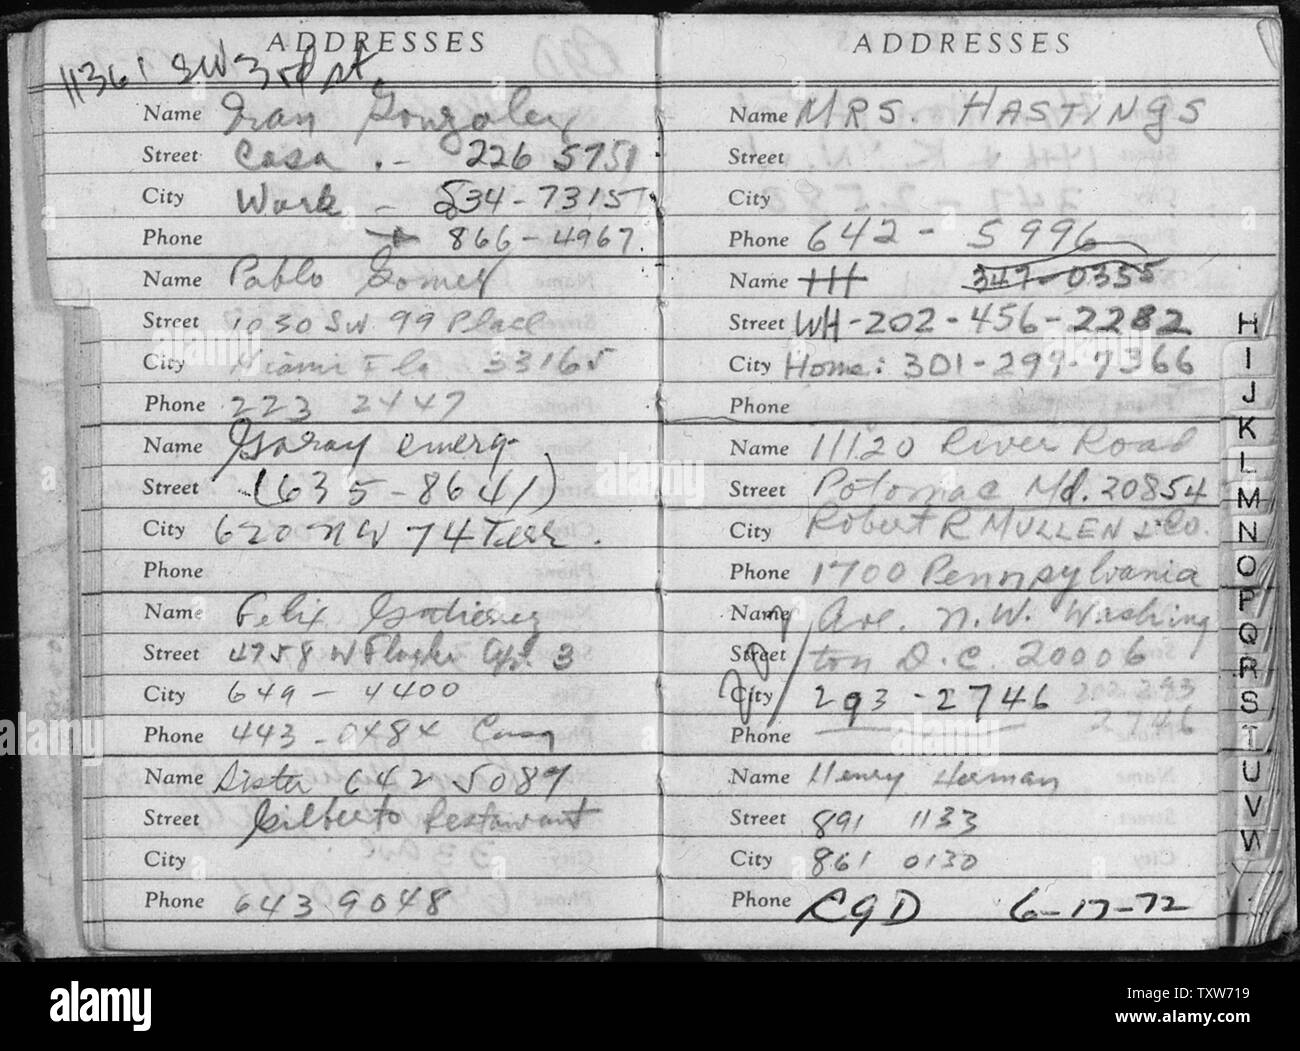 ADDRESSES
11361 SW 3rd st
Name Iran Gonzalez
Street Casa .- 226 5751
City Work - 534-7315
Phone 866-4967.
Name Pablo Gomez
Street 1030 SW 99 Place
City Miami Fla 33165
Phone 223 2447
Name Garay emerg-
Street (635-8641)
City 620 NW 74 Terr.
Phone
Name Felix Gutierrez
Street 4758 W Flagler Apt. 3
City 649-4400
Phone 443-0484 Casa
Name Sister 642 5089
Street Gilberto Restaurant
City
Phone 643 9048
ADDRESSES
Name MRS. HASTINGS
Street
City
Phone 642 - 5996
Name HH 347-0355
Street WH-202-456-2282
City Home: 301-299-7366
Phone
Name 11120 River Road
Street Potomac Md. 20854
City Robert R MULLEN & Co.
Phone 1700 Pennsylvania
Name Ave. N.W. Washing
Street ton D.C. 20006
City 293-2746 202 293
Phone 2746
Name Henry Herman
Street 891 1133
City 861 0130
Phone RGD 6-17-72
H
I
J
K
L
M
N
O
P
Q
R
S
T
U
V
W
Y
alamy
Image ID: TXW719
www.alamy.com